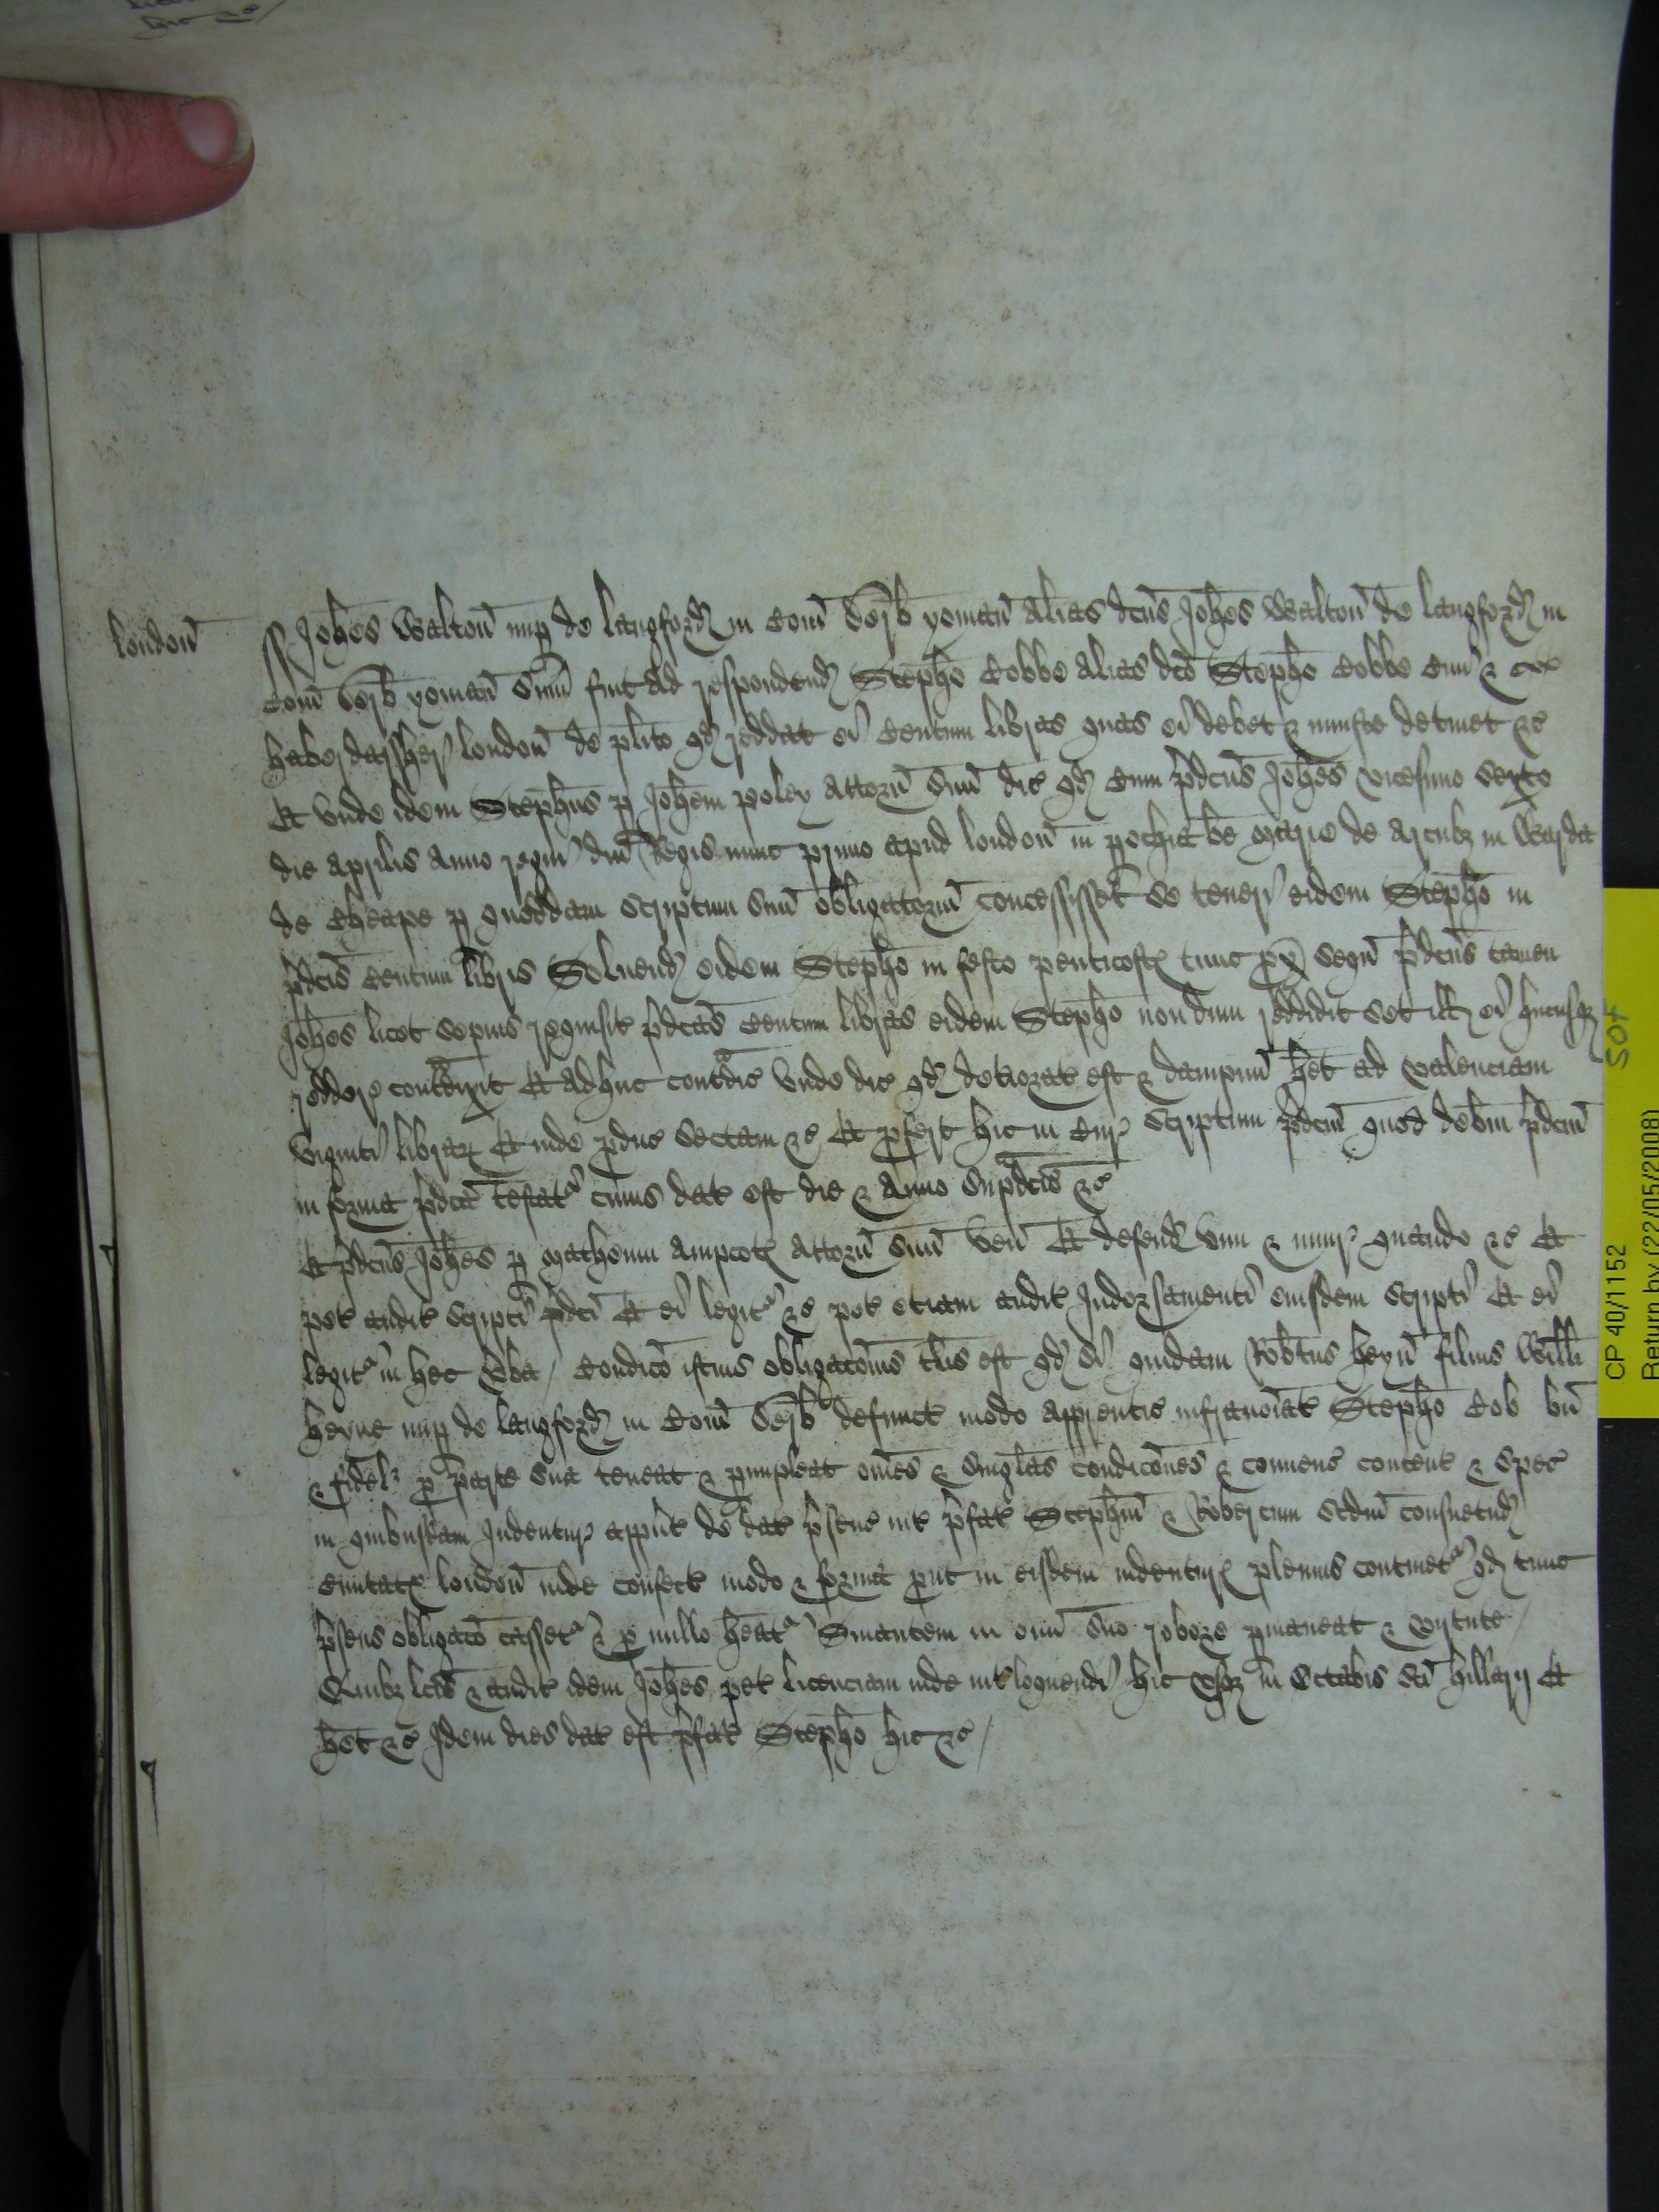 london̄ ss Joh̄es Walton̄ nup de langford in Com̄ Derb yoman̄ Alias dcūs Joh̄es Walton̄ de langford in
Com̄ Derb yoman̄ Sum̄ fuit Ad respondend Steph̄o Cobbe Alias dc̄o Steph̄o Cobbe Ciui &
haberdassher london̄ de pl̄ito qd reddat ei Centum libras quas ei debet & iniuste detinet &c
Et vnde idem Steph̄us p Joh̄em poley Attorn̄ Suū dic qd Cum p̄dcūs Joh̄es vicesimo Sexto
die Aprilis Anno regni dn̄i Regis nunc primo apud london̄ in pochia b̄e Marie de Arcubȝ in Warda
de Cheape p quoddam Scriptum Suū obligatoriū concessisset se teneri eidem Steph̄o in
p̄dcīs Centum libris Soluend eidem Steph̄o in festo penticost tunc px̄ seqū p̄dcūs tamen
Joh̄es licet sepius requisit p̄dcās Centum libras eidem Steph̄o nondum reddidit Set ill ei hucusqȝ
reddere contᵃdixit Et adhuc contᵃdic vnde dic qd deteriorat est & dampnū h̄et ad valenciam
viginti librar Et inde pduc Sectam &c Et pfert hic in Cur Scriptum p̄dcm̄ quod deb̄m p̄dcm̄
in forma p̄dcā testatʳ cuius dat est die & Anno Supᵃdcīs &c
Et p̄dcūs Joh̄es p Matheum Ampcot Attorn̄ Suū ven̄ Et defend vim & iniur quando &c Et
pet audit Scripti p̄dcī Et ei legitʳ &c pet etiam audit Indorsamenti eiusdem Scripti Et ei
legitʳ in hec v̄ba / Condicō istius obligacōis tl̄is est qd si quidam Rob̄tus heyn̄ filius Will̄i
heyne nup de langford in Com̄ Derb defunct modo Apprentic infranōiat Steph̄o Cob bn̄
& fidel p parte sua teneat & pimpleat om̄es & Singl̄as condicōnes & conuenc content & Spec
in quibusdam Indentur appn̄t de dat p̄senc int p̄fat Steph̄m & Robertum Scdm̄ consuetud
Ciuitat london̄ inde confect modo & forma put in eisdem indentur plenius continetʳ qd tunc
p̄sens obligacō cassetʳ & p nullo h̄eatʳ Sinautem in om̄i suo robore pmaneat & virtute /
Quibȝ lcīs & audit idem Joh̄es pet licenciam inde int̄loquendi hic vsqȝ in Octabis Sc̄i hillarij Et
h̄et &c Idem dies dat est p̄fat Steph̄o hic &c /
CP 40/1152
Return by (22/05/2008)
SOT